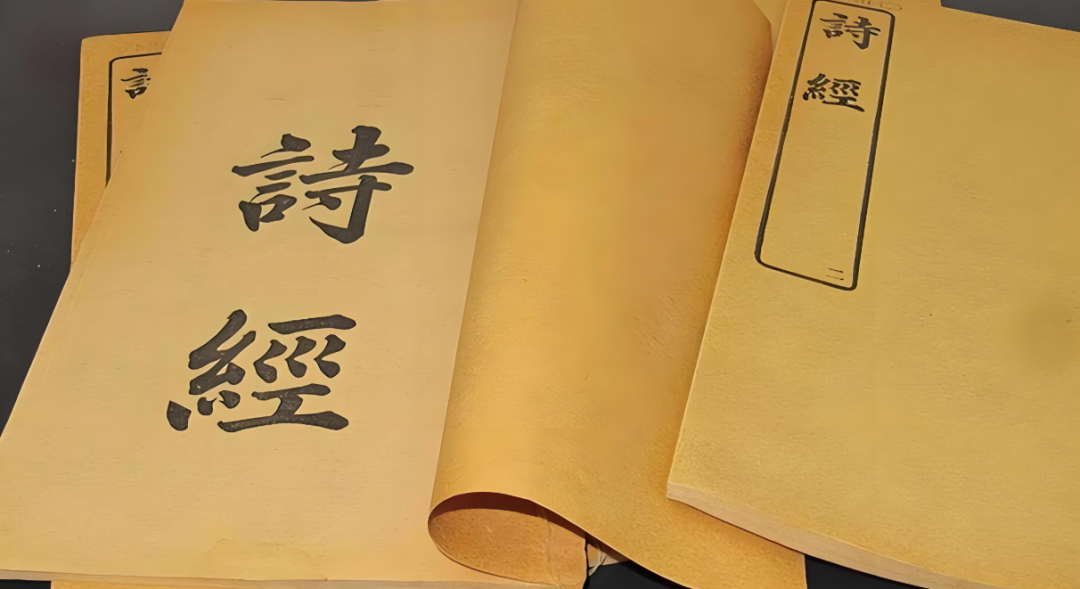 詩經
詩經
二
詩